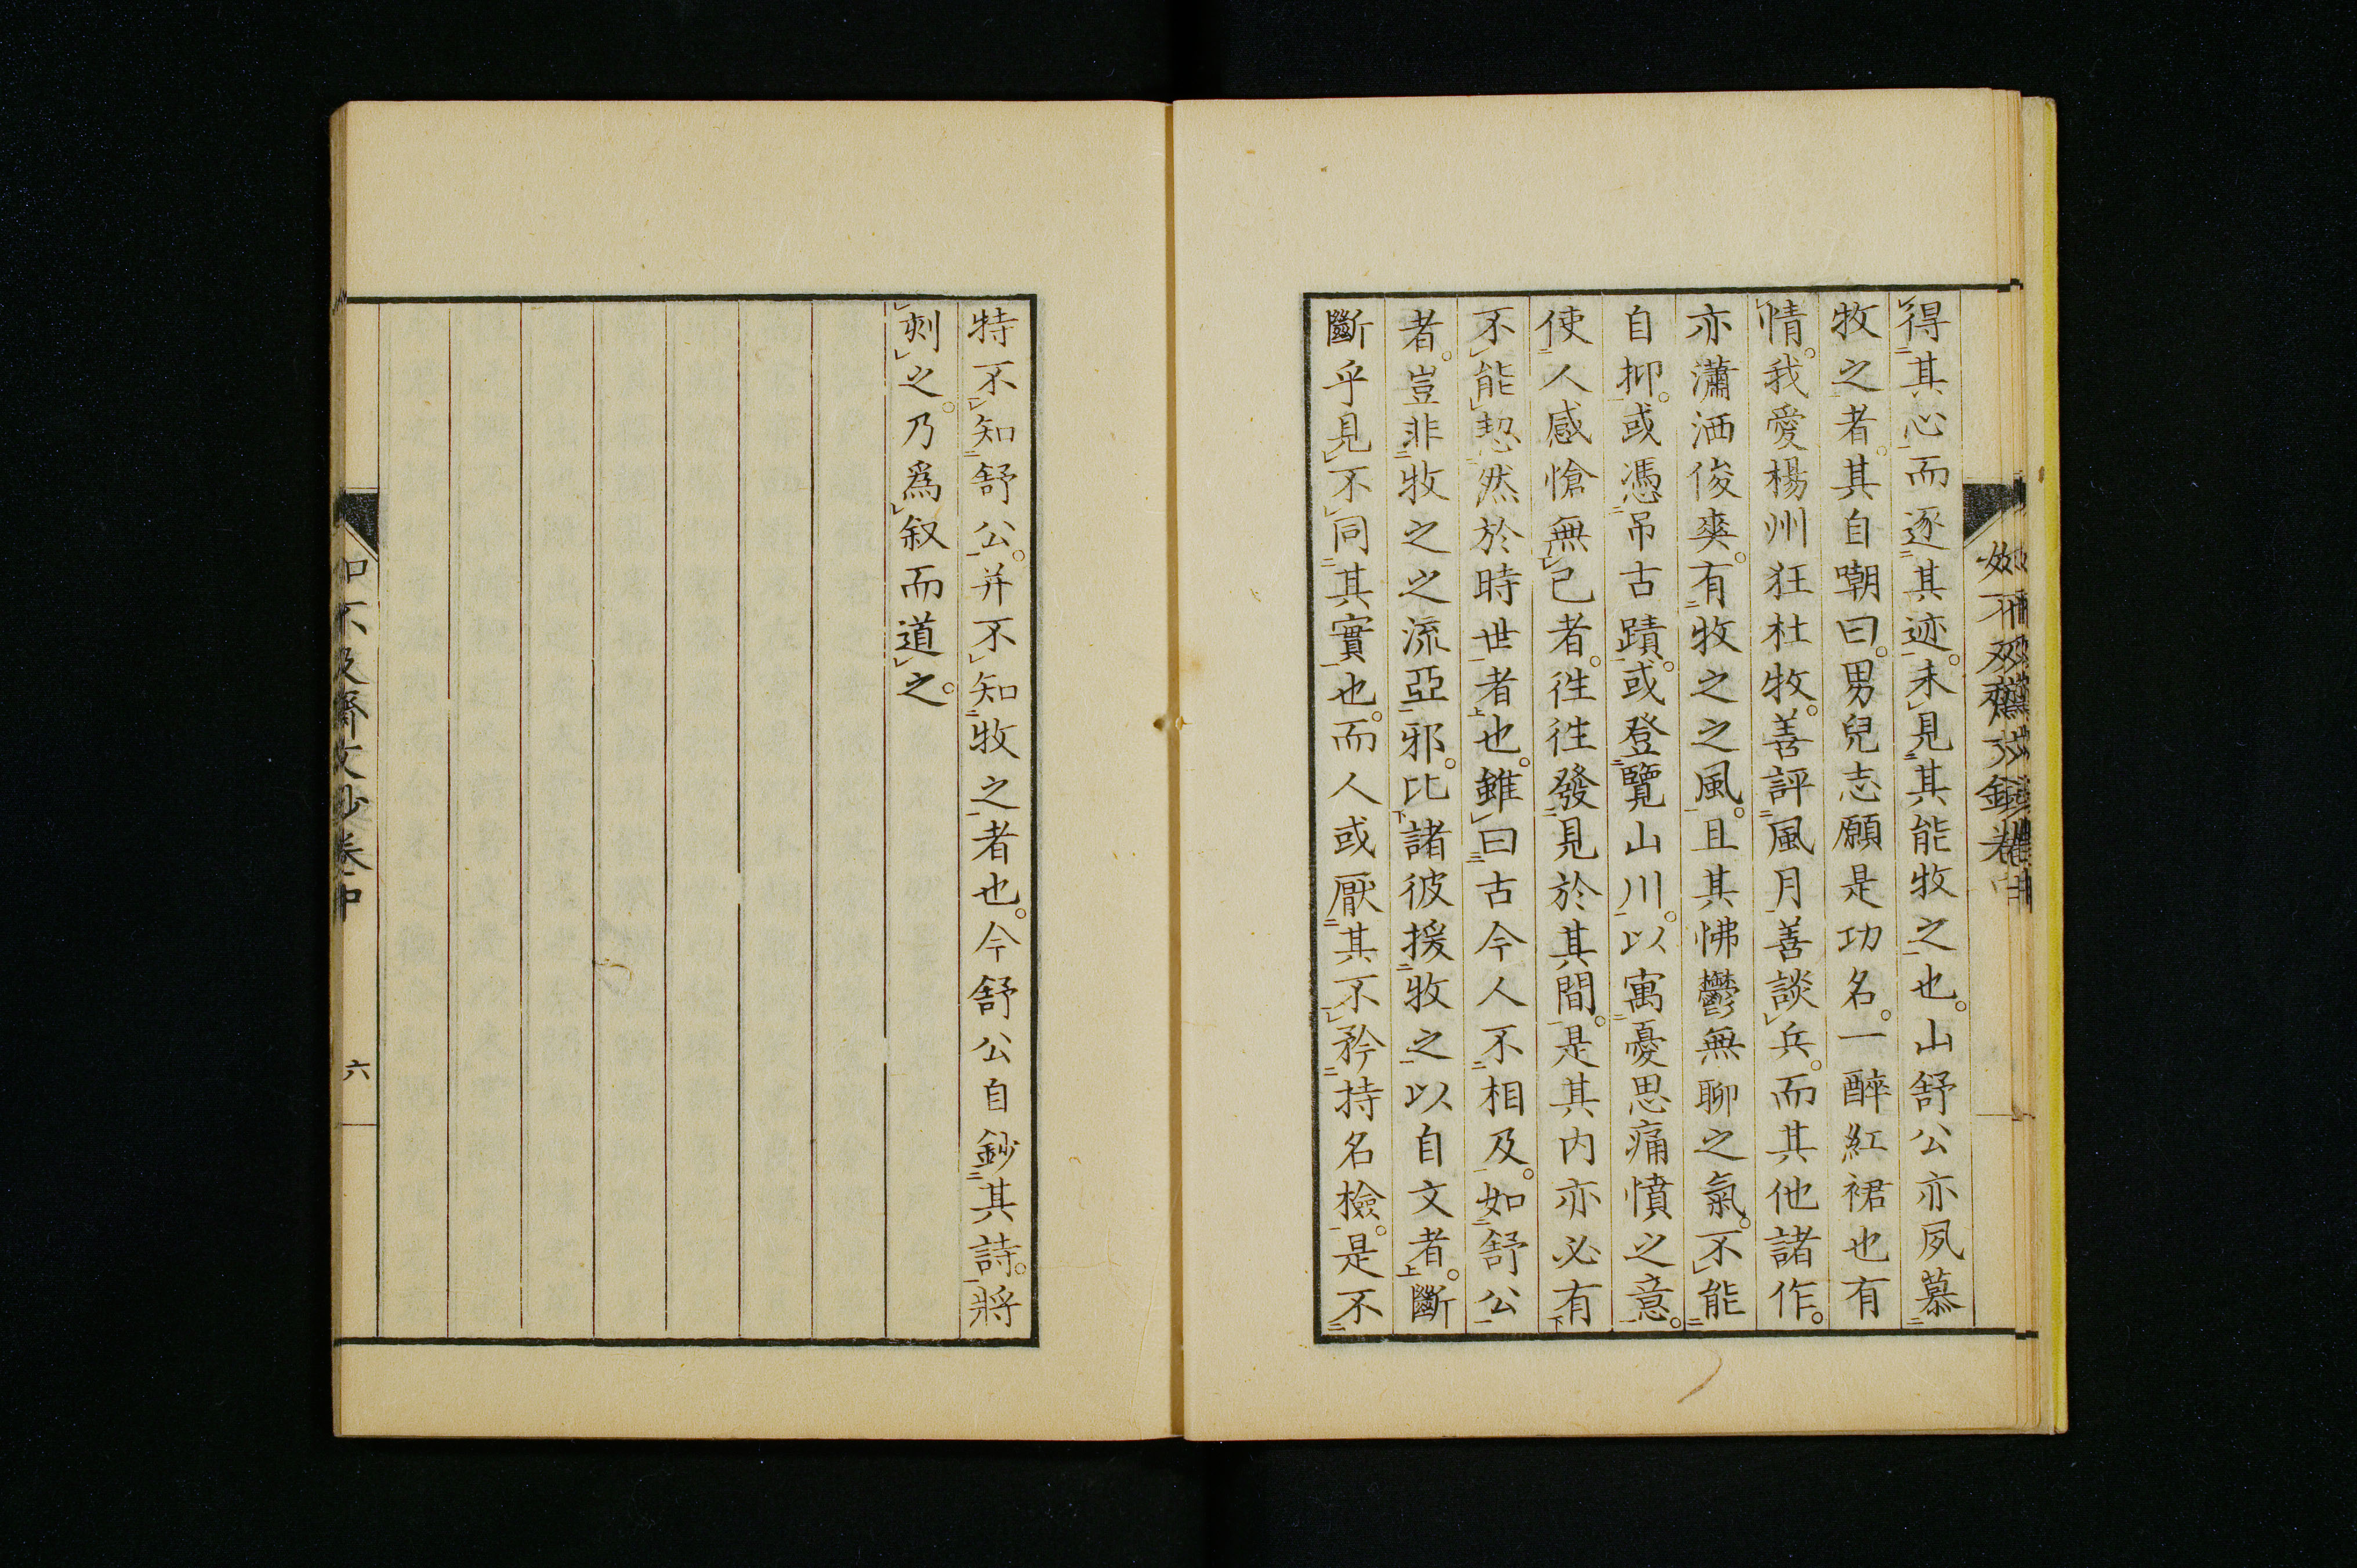 得其心而逐其迹。未見其能牧之也。山舒公亦夙慕
牧之者。其自嘲曰。男兒志願是功名。一醉紅裙也有
情。我愛楊州狂杜牧。善評風月善談兵。而其他諸作。
亦瀟洒俊爽。有牧之之風。且其怫鬱無聊之氣。不能
自抑。或憑吊古蹟。或登覽山川。以寓憂思痛憤之意。
使人感愴無已者。徃徃發見於其間。是其内亦必有
不能恝然於時世者也。雖曰古今人不相及。如舒公
者。豈非牧之之流亞邪。比諸彼援牧之以自文者。斷
斷乎見不同其實也。而人或厭其不矜持名檢。是不
特不知舒公。并不知牧之者也。今舒公自鈔其詩。將
刻之。乃爲叙而道之。
如不及齋文鈔卷中
六